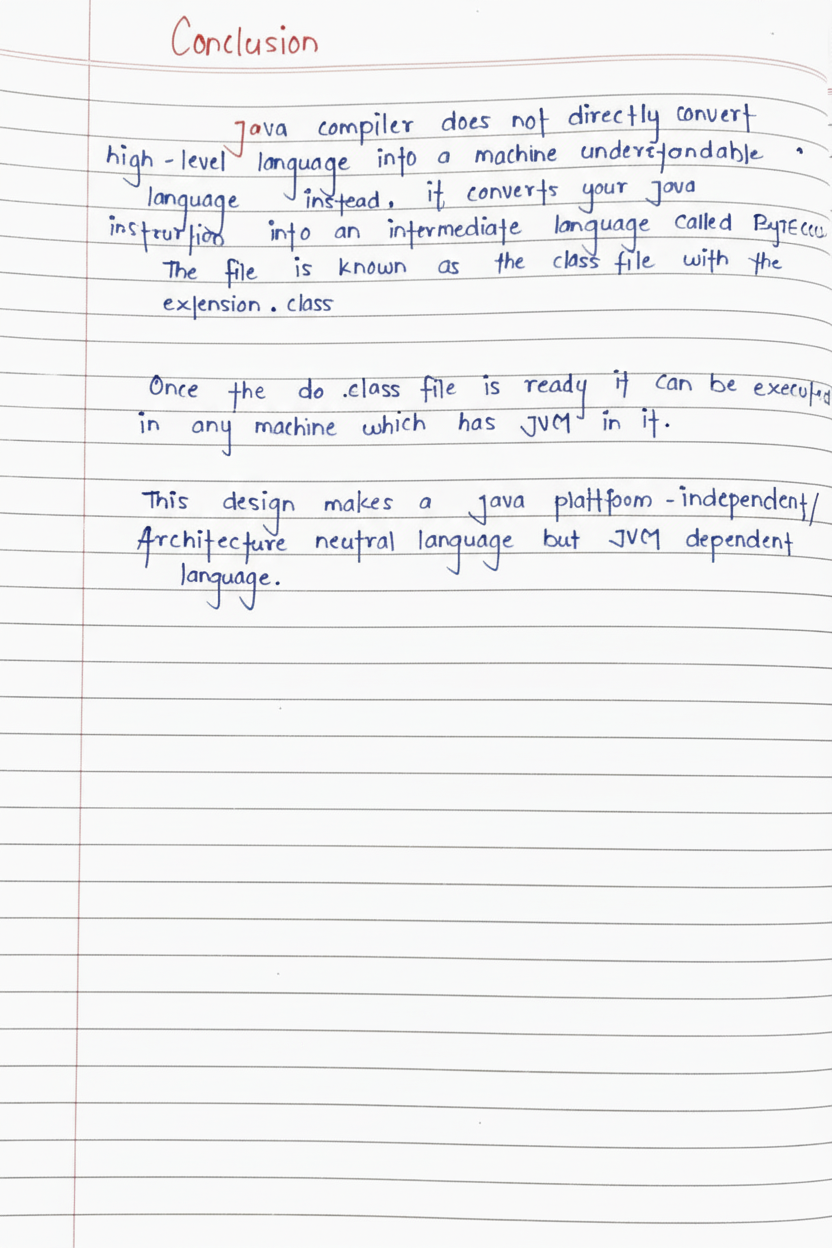 Conclusion
Java compiler does not directly convert
high-level language into a machine understandable
language instead, it converts your Java
instruction into an intermediate language called
The file is known as the class file with the
exlension .class
Once the do .class file is ready it can be executed
in any machine which has JVM in it.
This design makes a Java plattfoom-independent/
Architecture neutral language but JVM dependent
language.